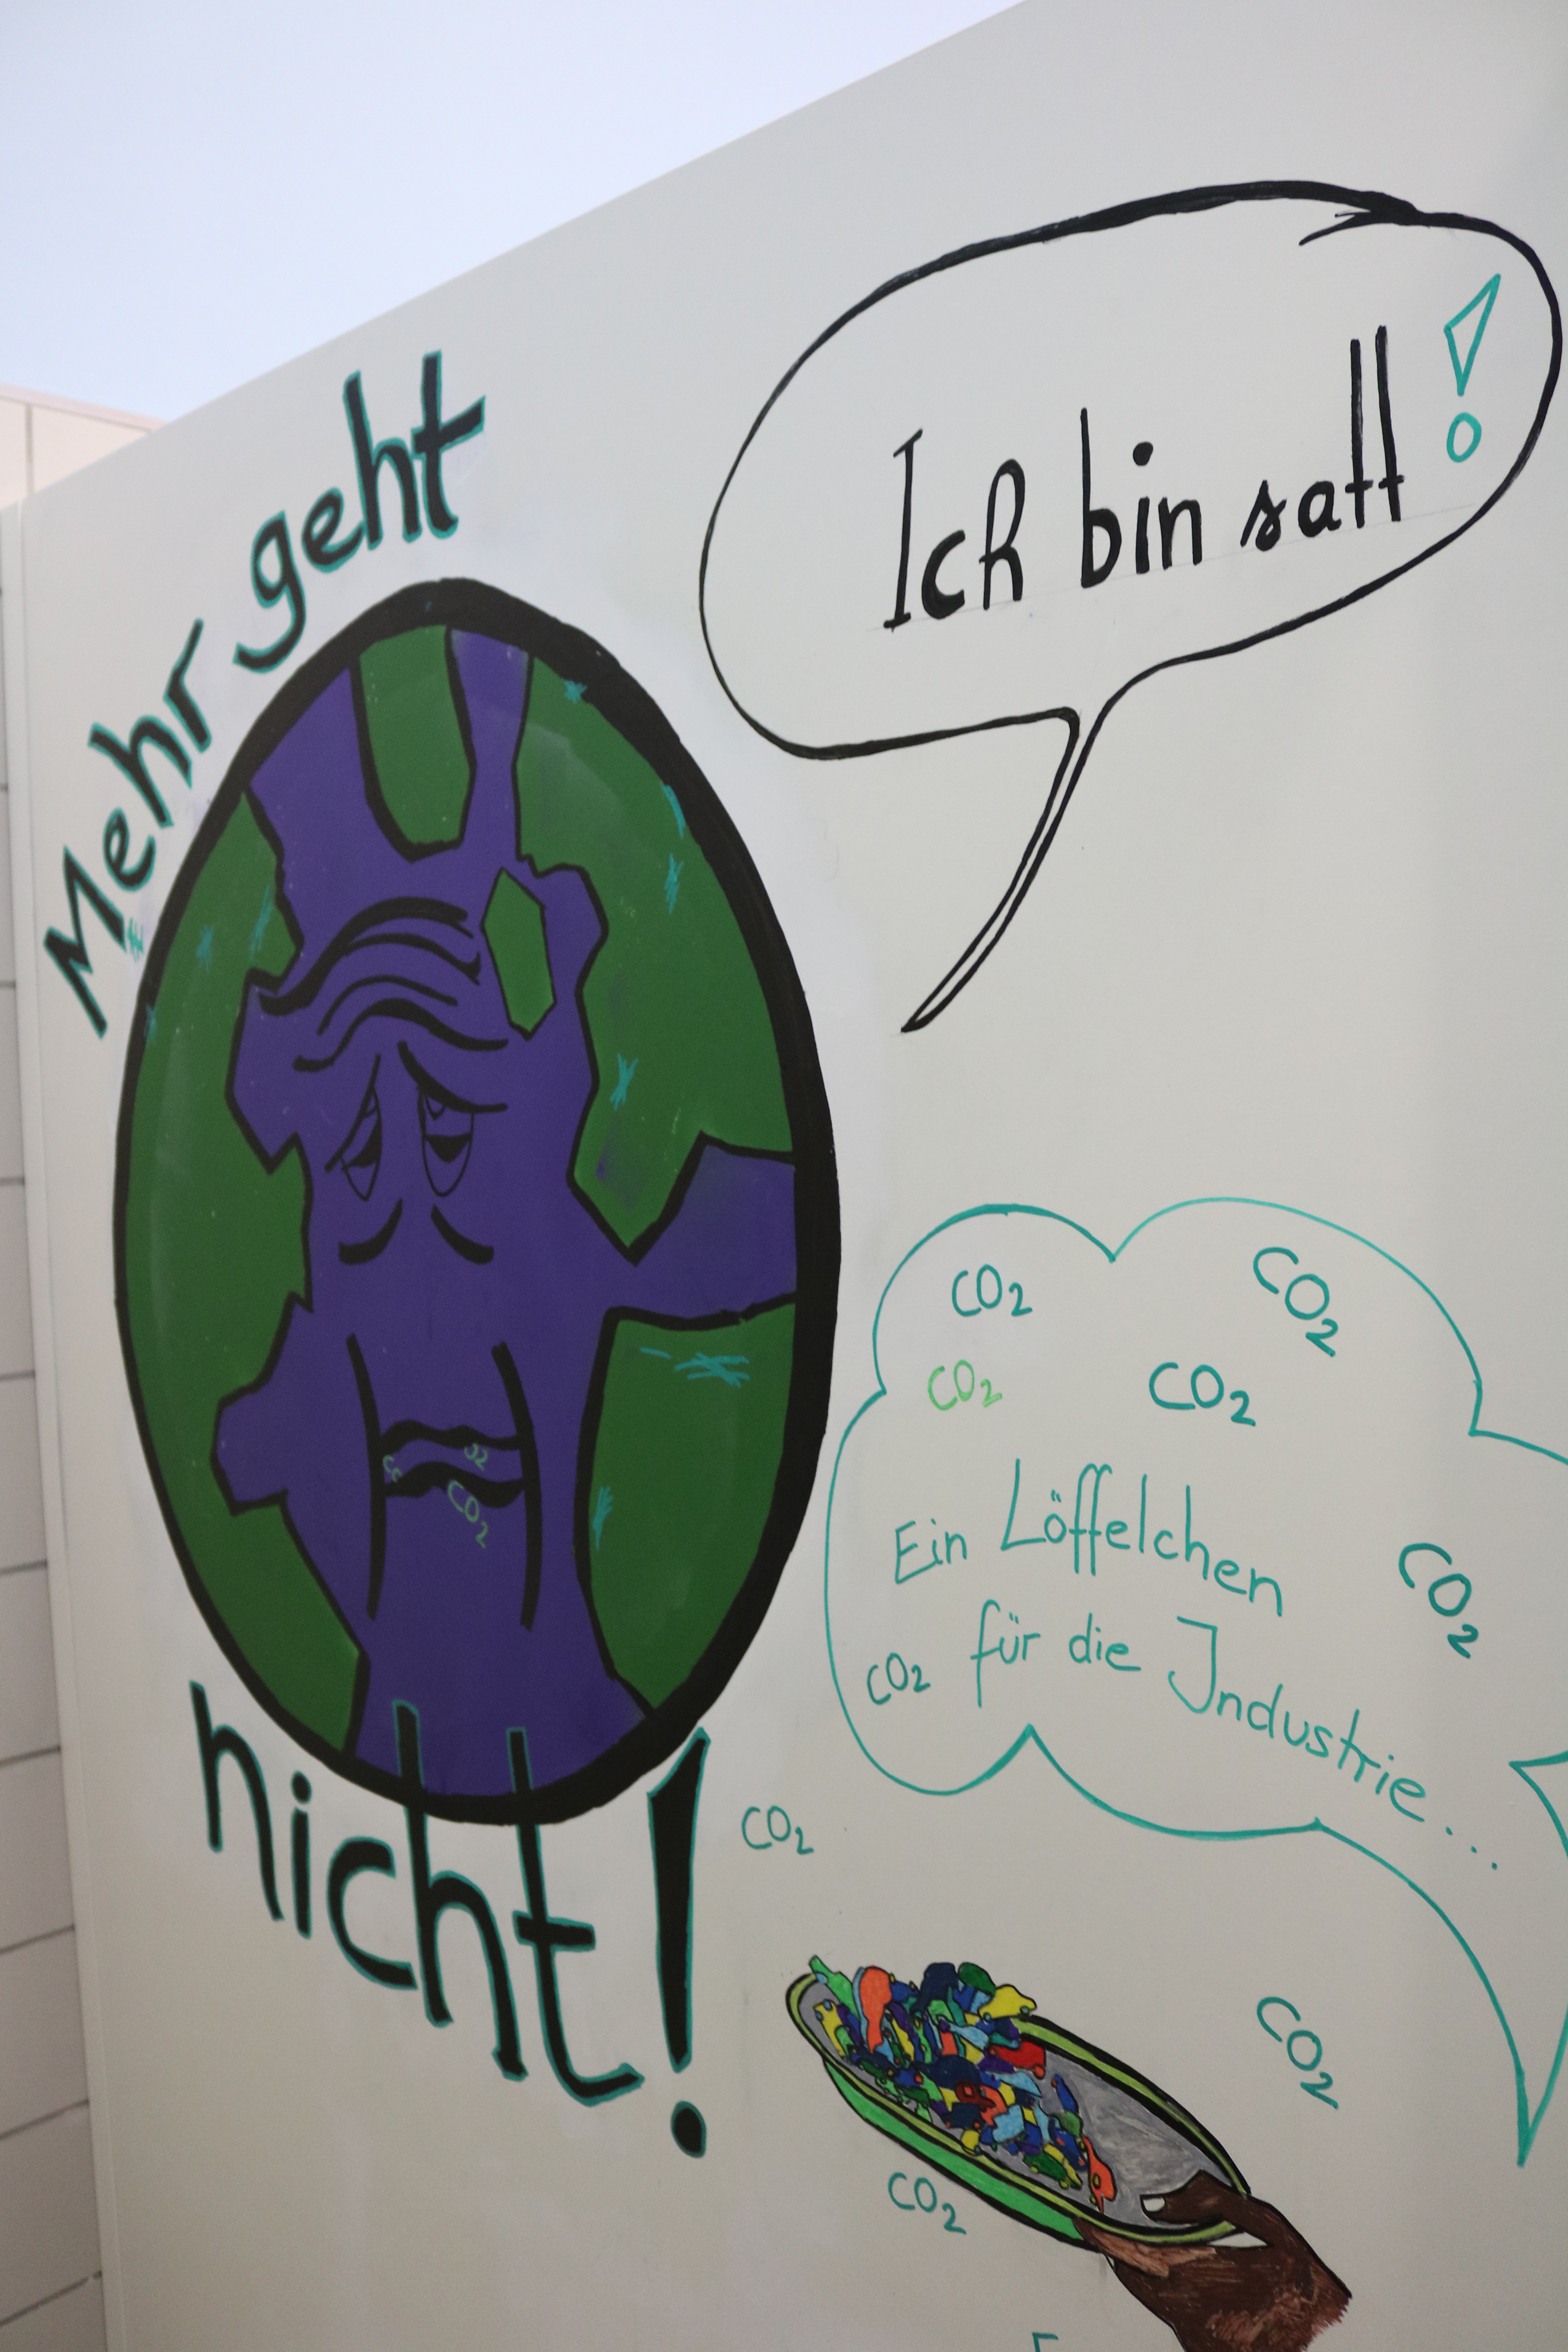 Mehr geht
nicht!
Ich bin satt!
CO₂
CO₂
CO₂
CO₂
Ein Löffelchen
CO₂
CO₂
für die Industrie...
CO₂
CO₂
CO₂
CO₂